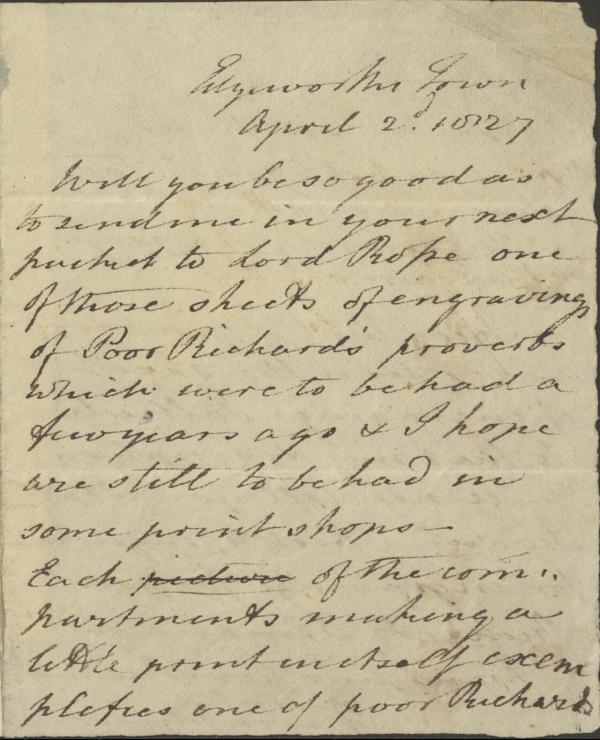 Edgeworths Town
April 2d. 1827
Will you be so good as
to send me in your next
packet to Lord Rosse one
of those sheets of engravings
of Poor Richard's proverbs
which were to be had a
few years ago & I hope
are still to be had in
some print shops—
Each picture of the com:
partments making a
little print in itself exem
plifies one of poor Richards